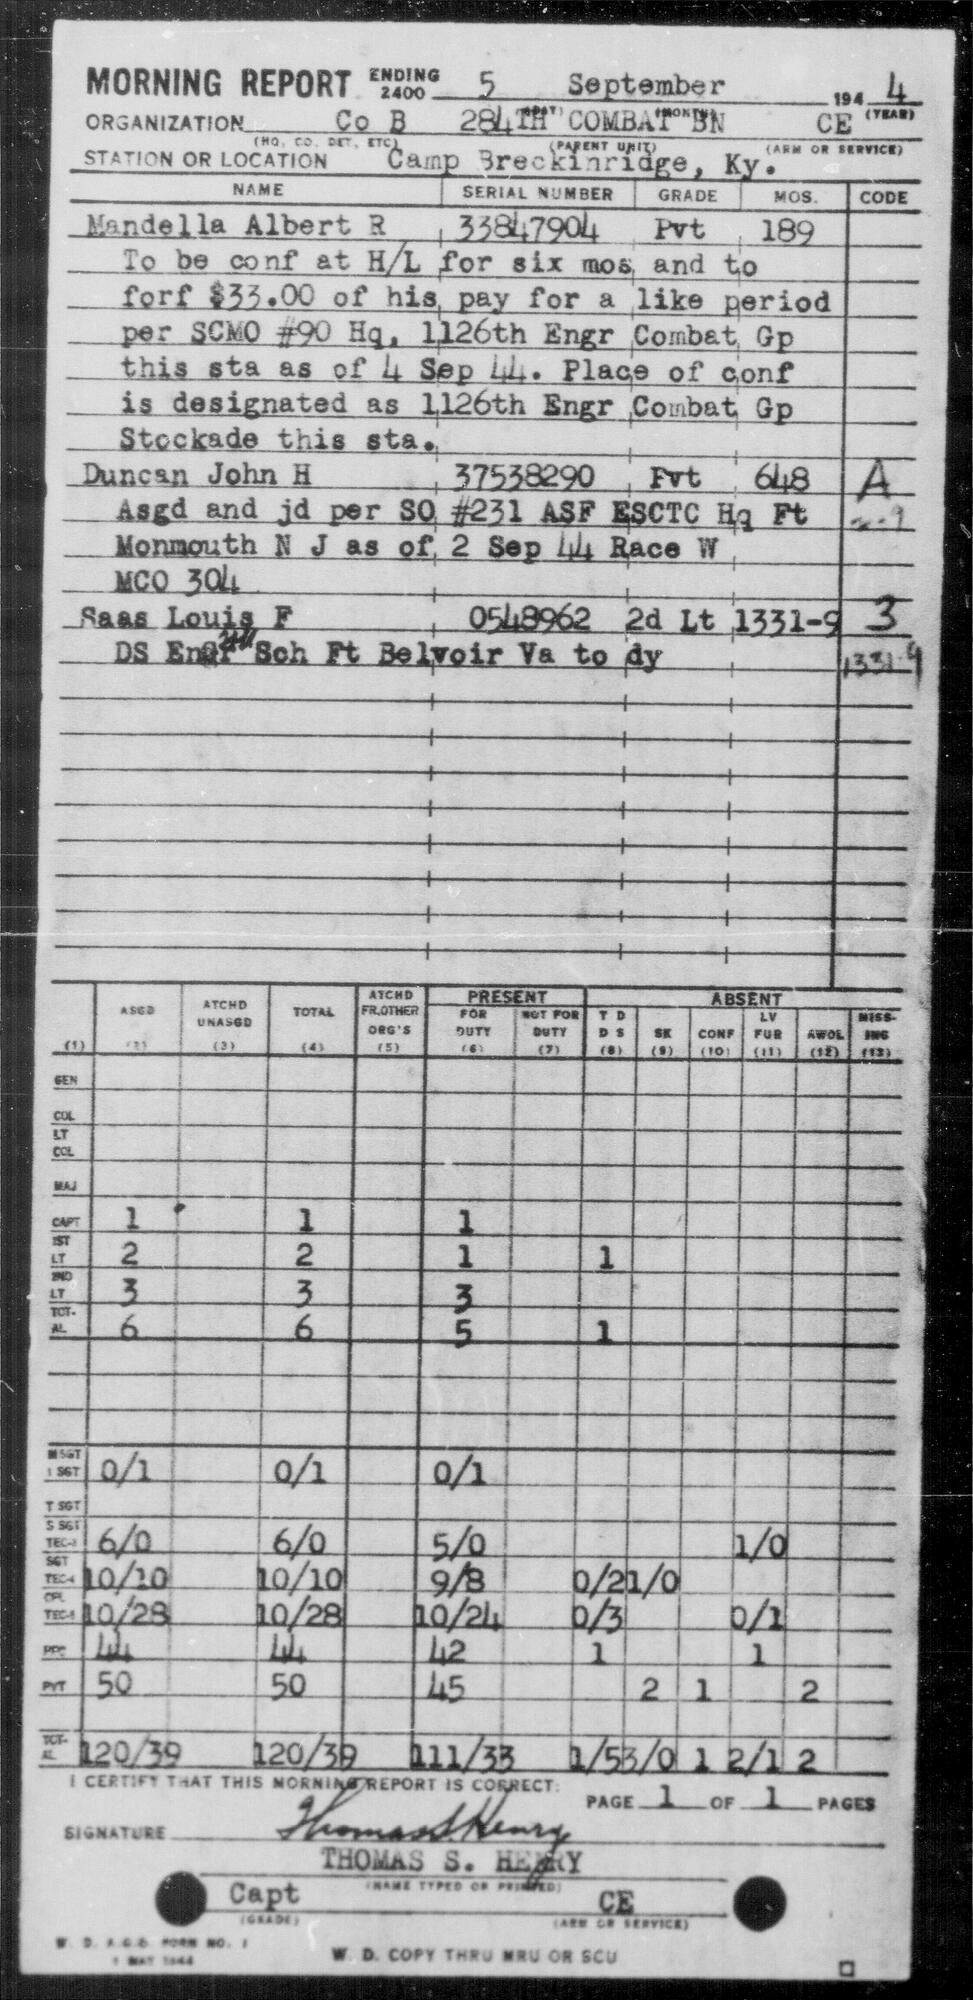 MORNING REPORT ENDING 2400 5 September 194 4
(DAY) (MONTH) (YEAR)
ORGANIZATION Co B 284TH COMBAT BN CE
(HQ, CO, DET, ETC) (PARENT UNIT) (ARM OR SERVICE)
STATION OR LOCATION Camp Breckinridge, Ky.
NAME SERIAL NUMBER GRADE MOS. CODE
Mandella Albert R 33847904 Pvt 189
To be conf at H/L for six mos and to
forf $33.00 of his pay for a like period
per SCMO #90 Hq, 1126th Engr Combat Gp
this sta as of 4 Sep 44. Place of conf
is designated as 1126th Engr Combat Gp
Stockade this sta.
Duncan John H 37538290 Pvt 648 A
Asgd and jd per SO #231 ASF ESCTC Hq Ft
Monmouth N J as of 2 Sep 44 Race W
MCO 304
Saas Louis F 0548962 2d Lt 1331-9 3
DS Engr Sch Ft Belvoir Va to dy 1331-9
PRESENT ABSENT
(1) ASGD (2) ATCHD UNASGD (3) TOTAL (4) ATCHD FR.OTHER ORG'S (5) FOR DUTY (6) NOT FOR DUTY (7) T D D S (8) SK (9) CONF (10) LV FUR (11) AWOL (12) MISSING (13)
GEN
COL
LT COL
MAJ
CAPT 1 1 1
1ST LT 2 2 1 1
2ND LT 3 3 3
TOT-AL 6 6 5 1
M SGT
1 SGT 0/1 0/1 0/1
T SGT
S SGT
TEC-3 6/0 6/0 5/0 1/0
SGT
TEC-4 10/10 10/10 9/8 0/2 1/0
CPL
TEC-5 10/28 10/28 10/24 0/3 0/1
PFC 44 44 42 1 1
PVT 50 50 45 2 1 2
TOT-AL 120/39 120/39 111/33 1/5 3/0 1 2/1 2
I CERTIFY THAT THIS MORNING REPORT IS CORRECT:
PAGE 1 OF 1 PAGES
SIGNATURE Thomas S Henry
THOMAS S. HENRY
(NAME TYPED OR PRINTED)
Capt CE
(GRADE) (ARM OR SERVICE)
W. D. A.G.O. FORM NO. 1
1 MAY 1944
W. D. COPY THRU MRU OR SCU